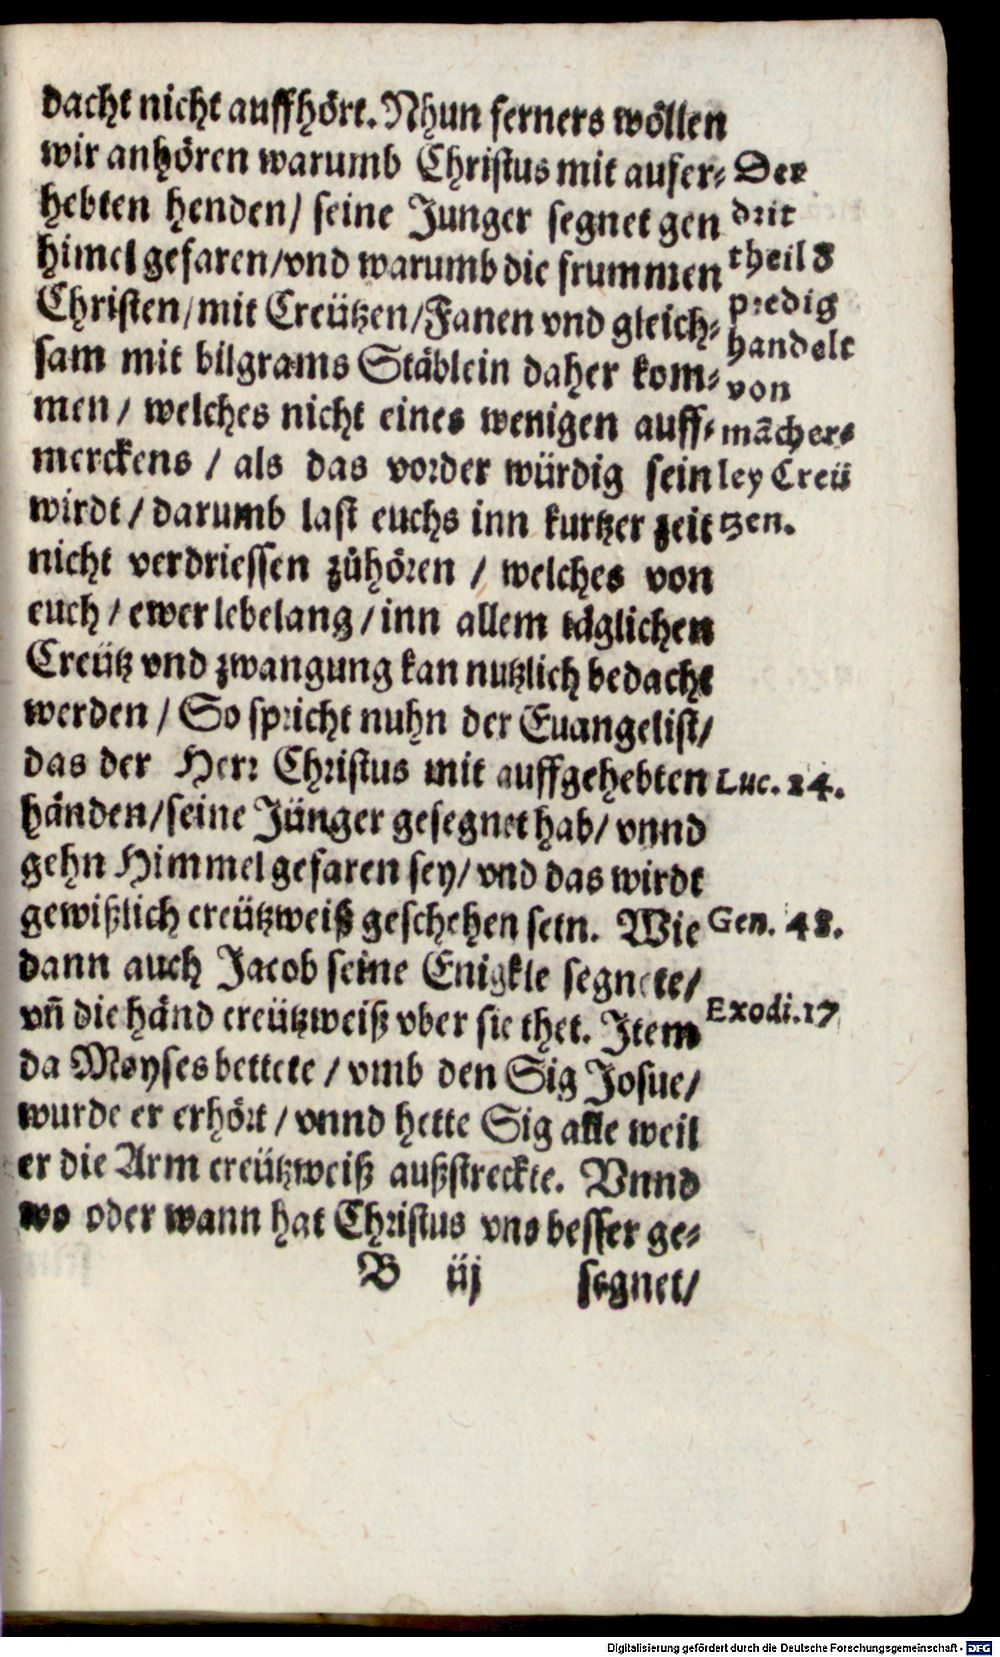 dacht nicht auffhört. Nhun ferners wöllen
wir anhören warumb Christus mit aufer⸗
hebten henden/ seine Junger segnet gen
himel gefaren/vnd warumb die frummen
Christen/mit Creützen/Fanen vnd gleich⸗
sam mit bilgrams Stäblein daher kom⸗
men / welches nicht eines wenigen auff⸗
merckens / als das vorder würdig sein
wirdt / darumb last euchs inn kurtzer zeit
nicht verdriessen zůhören / welches von
euch / ewer lebelang / inn allem täglichen
Creütz vnd zwangung kan nutzlich bedacht
werden / So spricht nuhn der Euangelist/
das der Herr Christus mit auffgehebten
händen/seine Jünger gesegnet hab/ vnnd
gehn Himmel gefaren sey/ vnd das wirdt
gewißlich creützweiß geschehen sein. Wie
dann auch Jacob seine Enigkle segnete/
vñ die händ creützweiß vber sie thet. Item
da Moyses bettete / vmb den Sig Josue/
wurde er erhört / vnnd hette Sig alle weil
er die Arm creützweiß außstreckte. Vnnd
wo oder wann hat Christus vns besser ge⸗
B iij segnet/
Der
drit
theil ď
predig
handelt
von
mãcher⸗
ley Creü
tzen.
Luc. 24.
Gen. 48.
Exodi. 17
Digitalisierung gefördert durch die Deutsche Forschungsgemeinschaft - DFG